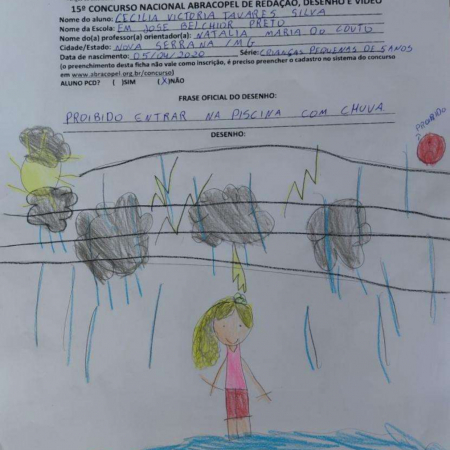 15º CONCURSO NACIONAL ABRACOPEL DE REDAÇÃO, DESENHO E VÍDEO
Nome do aluno: CECILIA VICTORIA TAVARES SILVA
Nome da Escola: EM JOSE BELCHIOR PRETO
Nome do(a) professor(a) orientador(a): NATÁLIA MARIA DO COUTO
Cidade/Estado: NOVA SERRANA/MG
Data de nascimento: 05/04/2020 Série: CRIANÇAS PEQUENAS DE 5 ANOS
(o preenchimento desta ficha não vale como inscrição, é preciso preencher o cadastro no sistema do concurso
em www.abracopel.org.br/concurso)
ALUNO PCD? ( )SIM (X)NÃO
FRASE OFICIAL DO DESENHO:
PROIBIDO ENTRAR NA PISCINA COM CHUVA.
DESENHO:
PROIBIDO